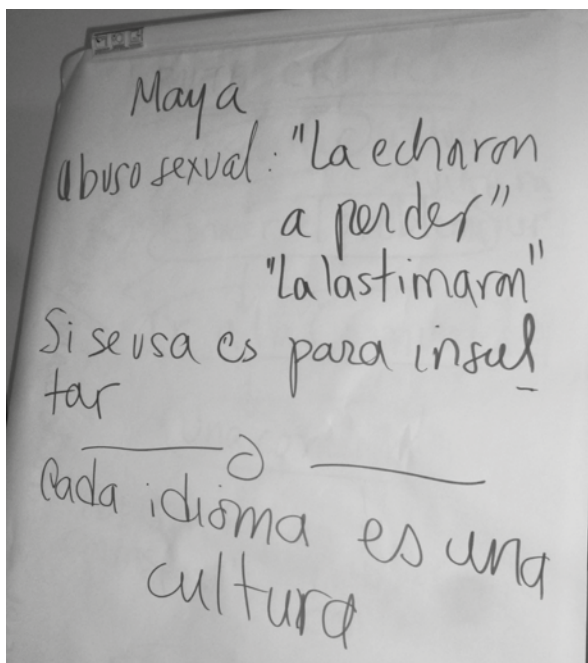 Maya
abuso sexual: "La echaron
a perder"
"La lastimaron"
Si se usa es para insul
tar
Cada idioma es una
cultura